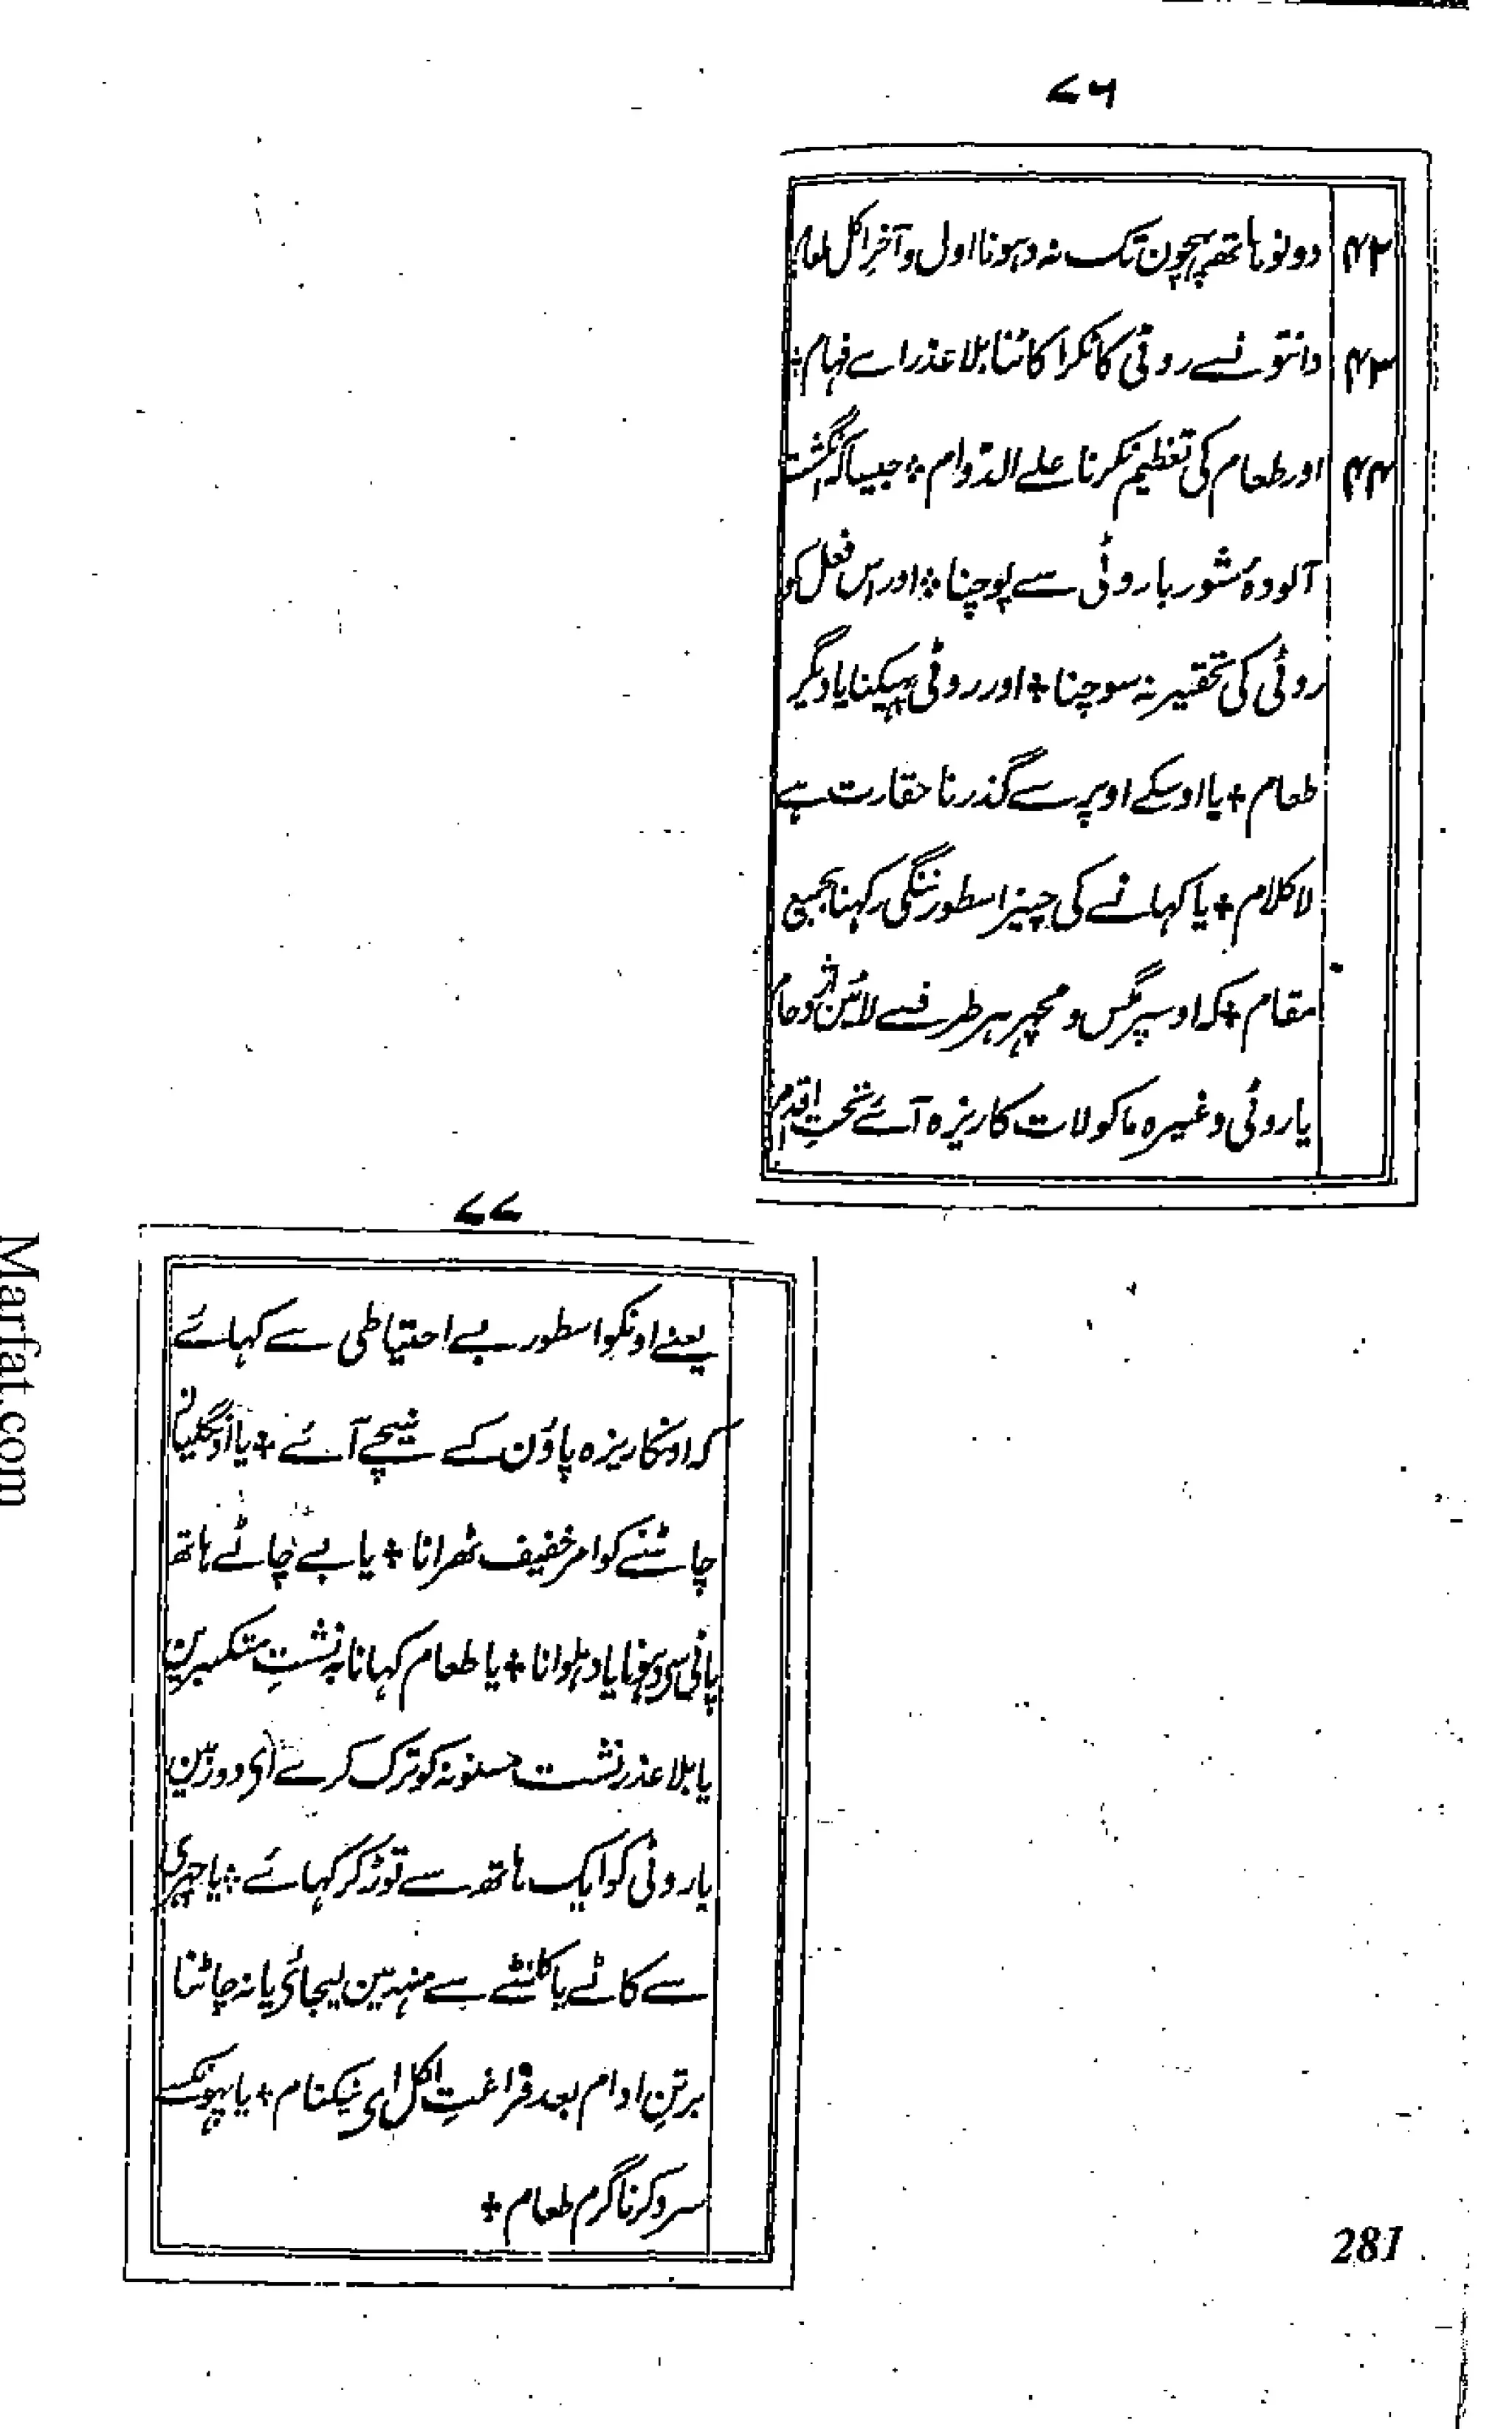 ۷۶
۴۲ دونو ہاتھ پہچون تک نہ دہونا اول و آخر اکل طعام
۴۳ دانتونسے روٹی کا ٹکڑا کاٹنا بلا عذر اے فہام +
۴۴ اور طعام کی تعظیم نکرنا علے الدوام + جیسا کہ انگشت
آلودہٴ شوربا روٹی سے پوچنا + اور اس فعل کو
روٹی کی تحقیر نہ سوچنا + اور روٹی پہیکنا یا دیگر
طعام + یا اوسکے اوپر سے گذرنا حقارت ہے
لا کلام + یا کہانے کی چیز اسطور ننگی رکہنا بجمیع
مقام + کہ اوسپر مگس و مچہر ہر طرفسے لائین ازدحام
یا روٹی وغیرہ ماکولات کا ریزہ آئے تحتِ اقدام
۷۷
یعنے اونکو اسطور بے احتیاطی سے کہائے
کہ اونکا ریزہ پاؤن کے نیچے آئے + یا اونگلیان
چاٹنے کو امر خفیف ٹھرانا + یا بے چاٹے ہاتھ
پانی سی دہونا یا دہلوانا + یا طعام کہانا بہ نشستِ متکبرین
یا بلا عذر نشست مسنونہ کو ترک کرے ای دوربین
یا روٹی کو ایک ہاتھ سے توڑ کر کہائے + یا چہری
سے کاٹے یا کانٹے سے منہ مین لیجائی یا نہ چاٹنا
برتنِ ادام بعد فراغتِ اکل ای نیکنام + یا پہونکسے
سرد کرنا گرم طعام +
281
Marfat.com